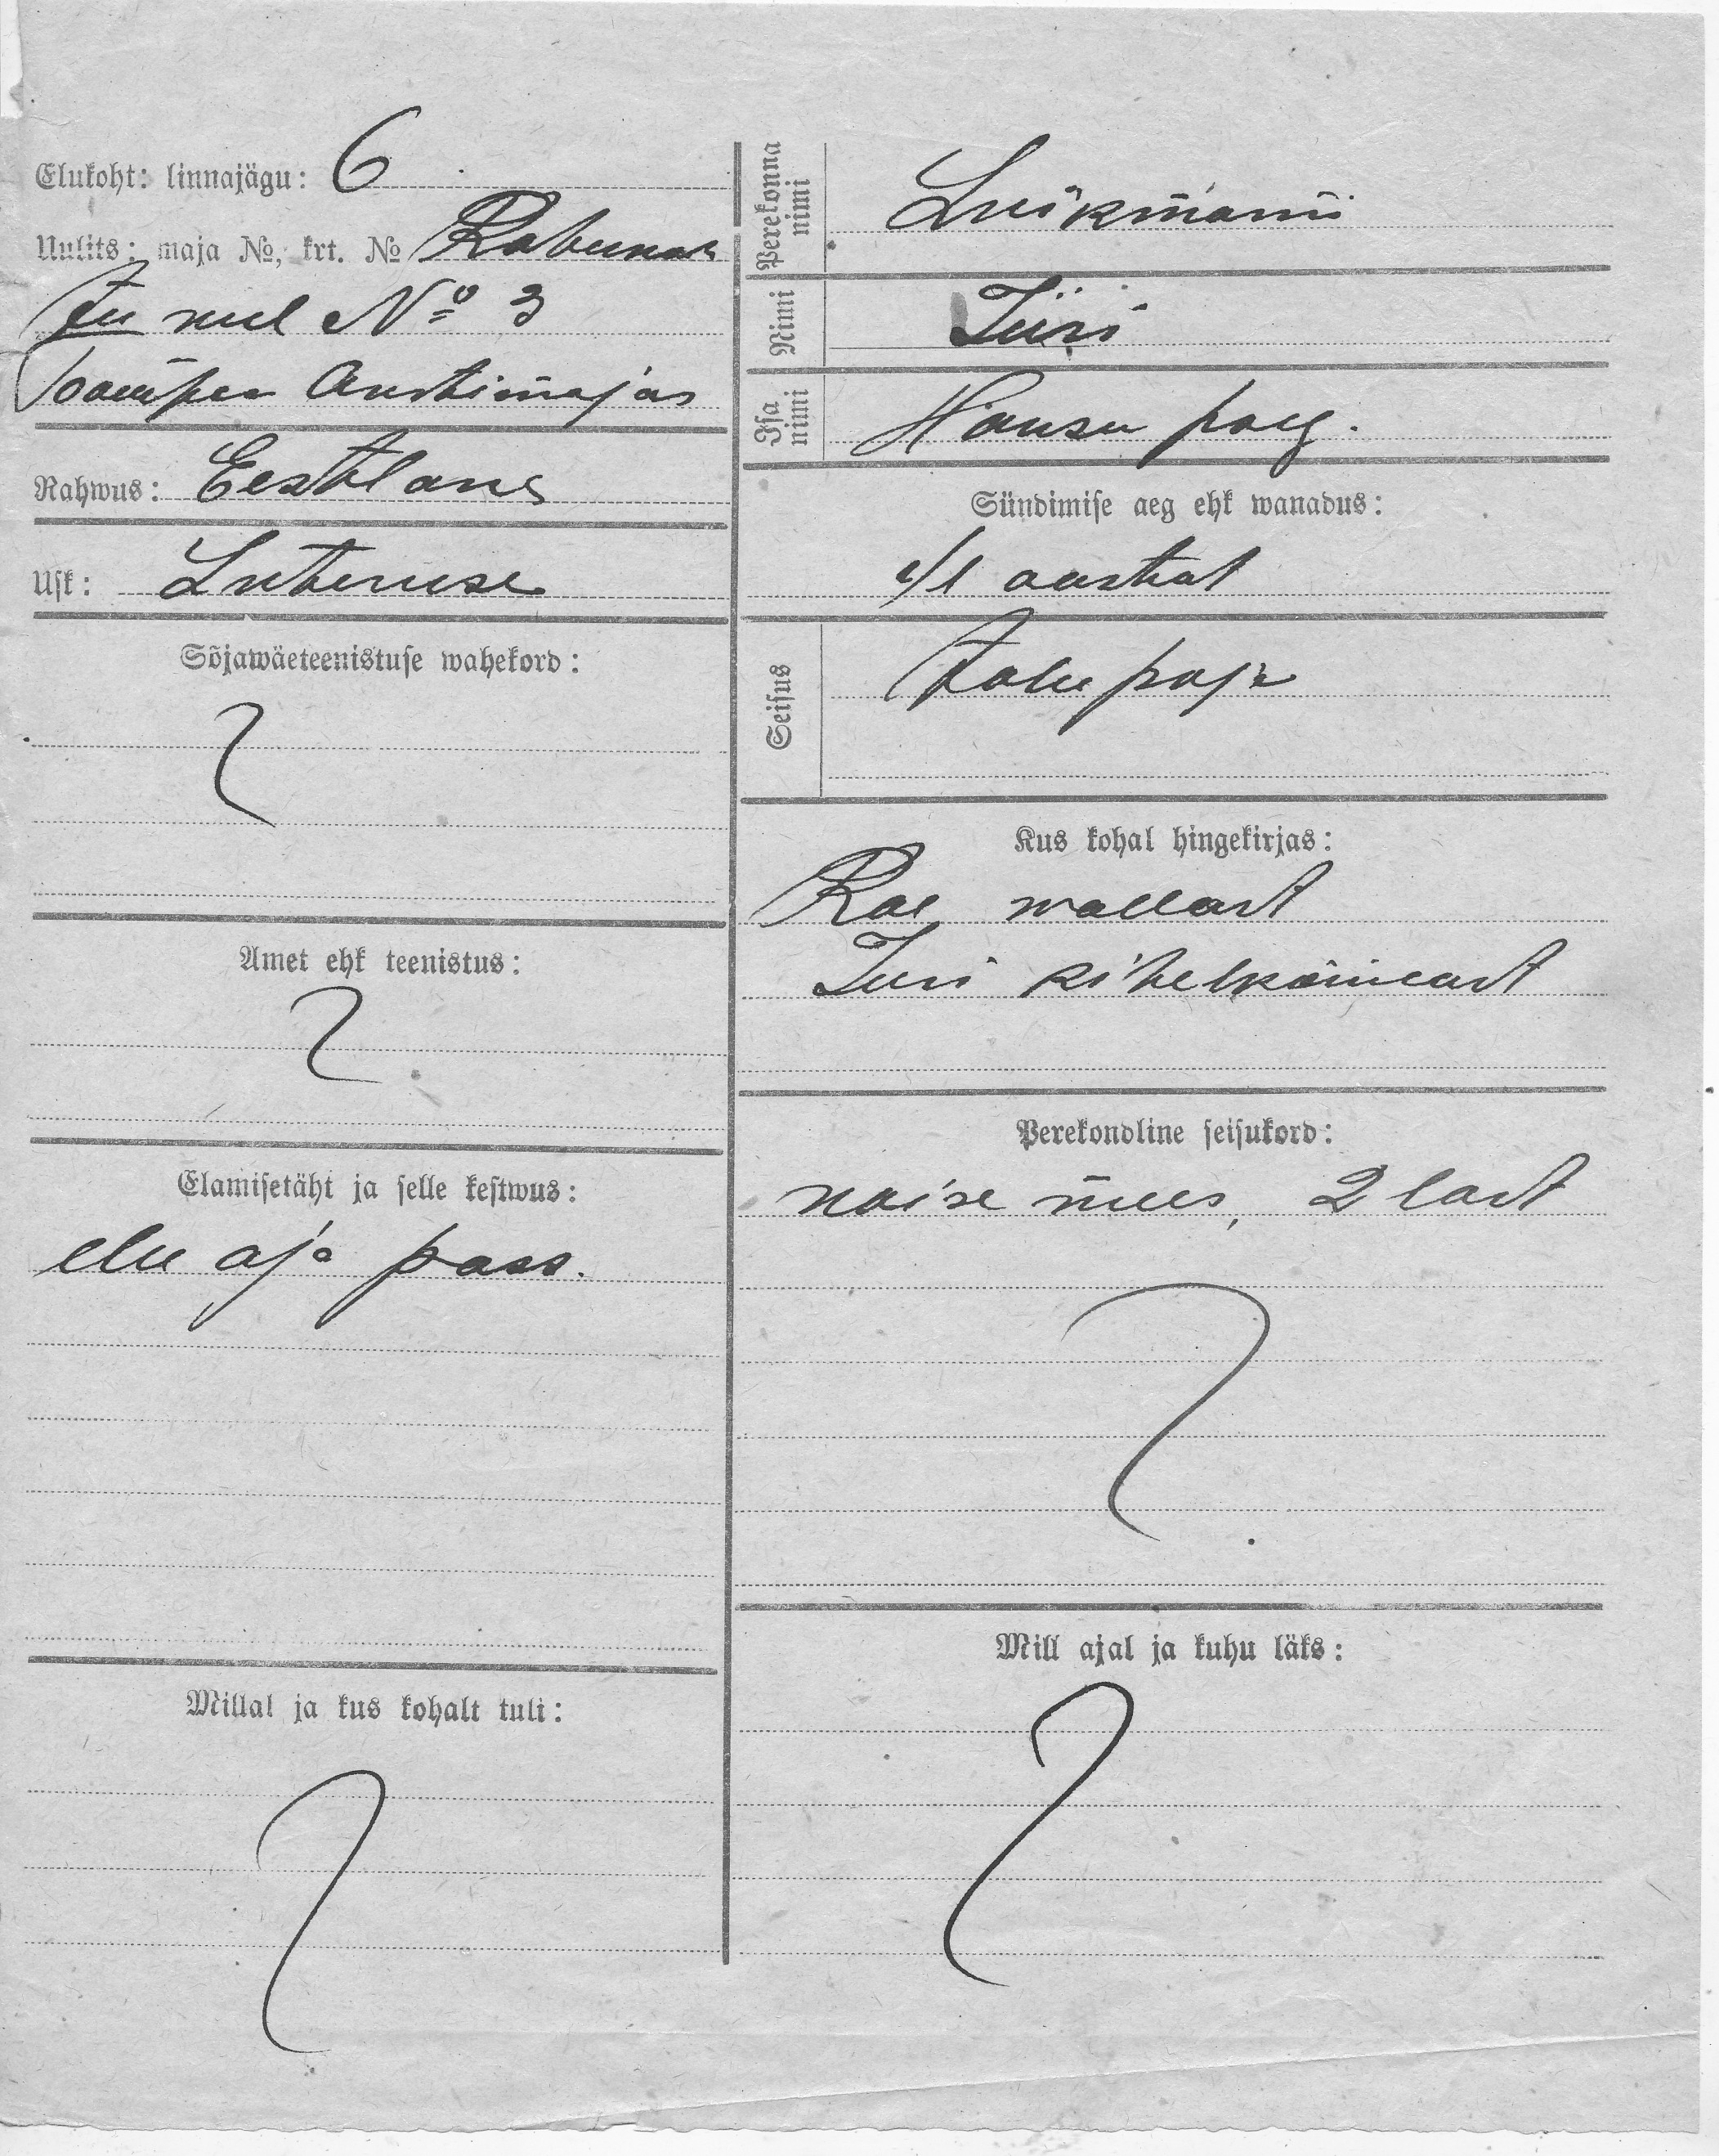 Elukoht: linnajägu: 6
Uulits: maja №, krt. №
uul № 3
Rahwus: Eestlane
Usk: Luteruse
Sõjawäeteenistuse wahekord:
Amet ehk teenistus:
Elamisetäht ja selle kestwus:
elu aja pass.
Millal ja kus kohalt tuli:
Perekonna nimi
Luikmann
Nimi Jüri
Isa nimi Hansu poeg.
Sündimise aeg ehk wanadus:
aastat
Seisus Talupoja
Kus kohal hingekirjas:
Rae wallast
Juri kihelkonnast
Perekondline seisukord:
naise mees, 2 last
Mill ajal ja kuhu läks: